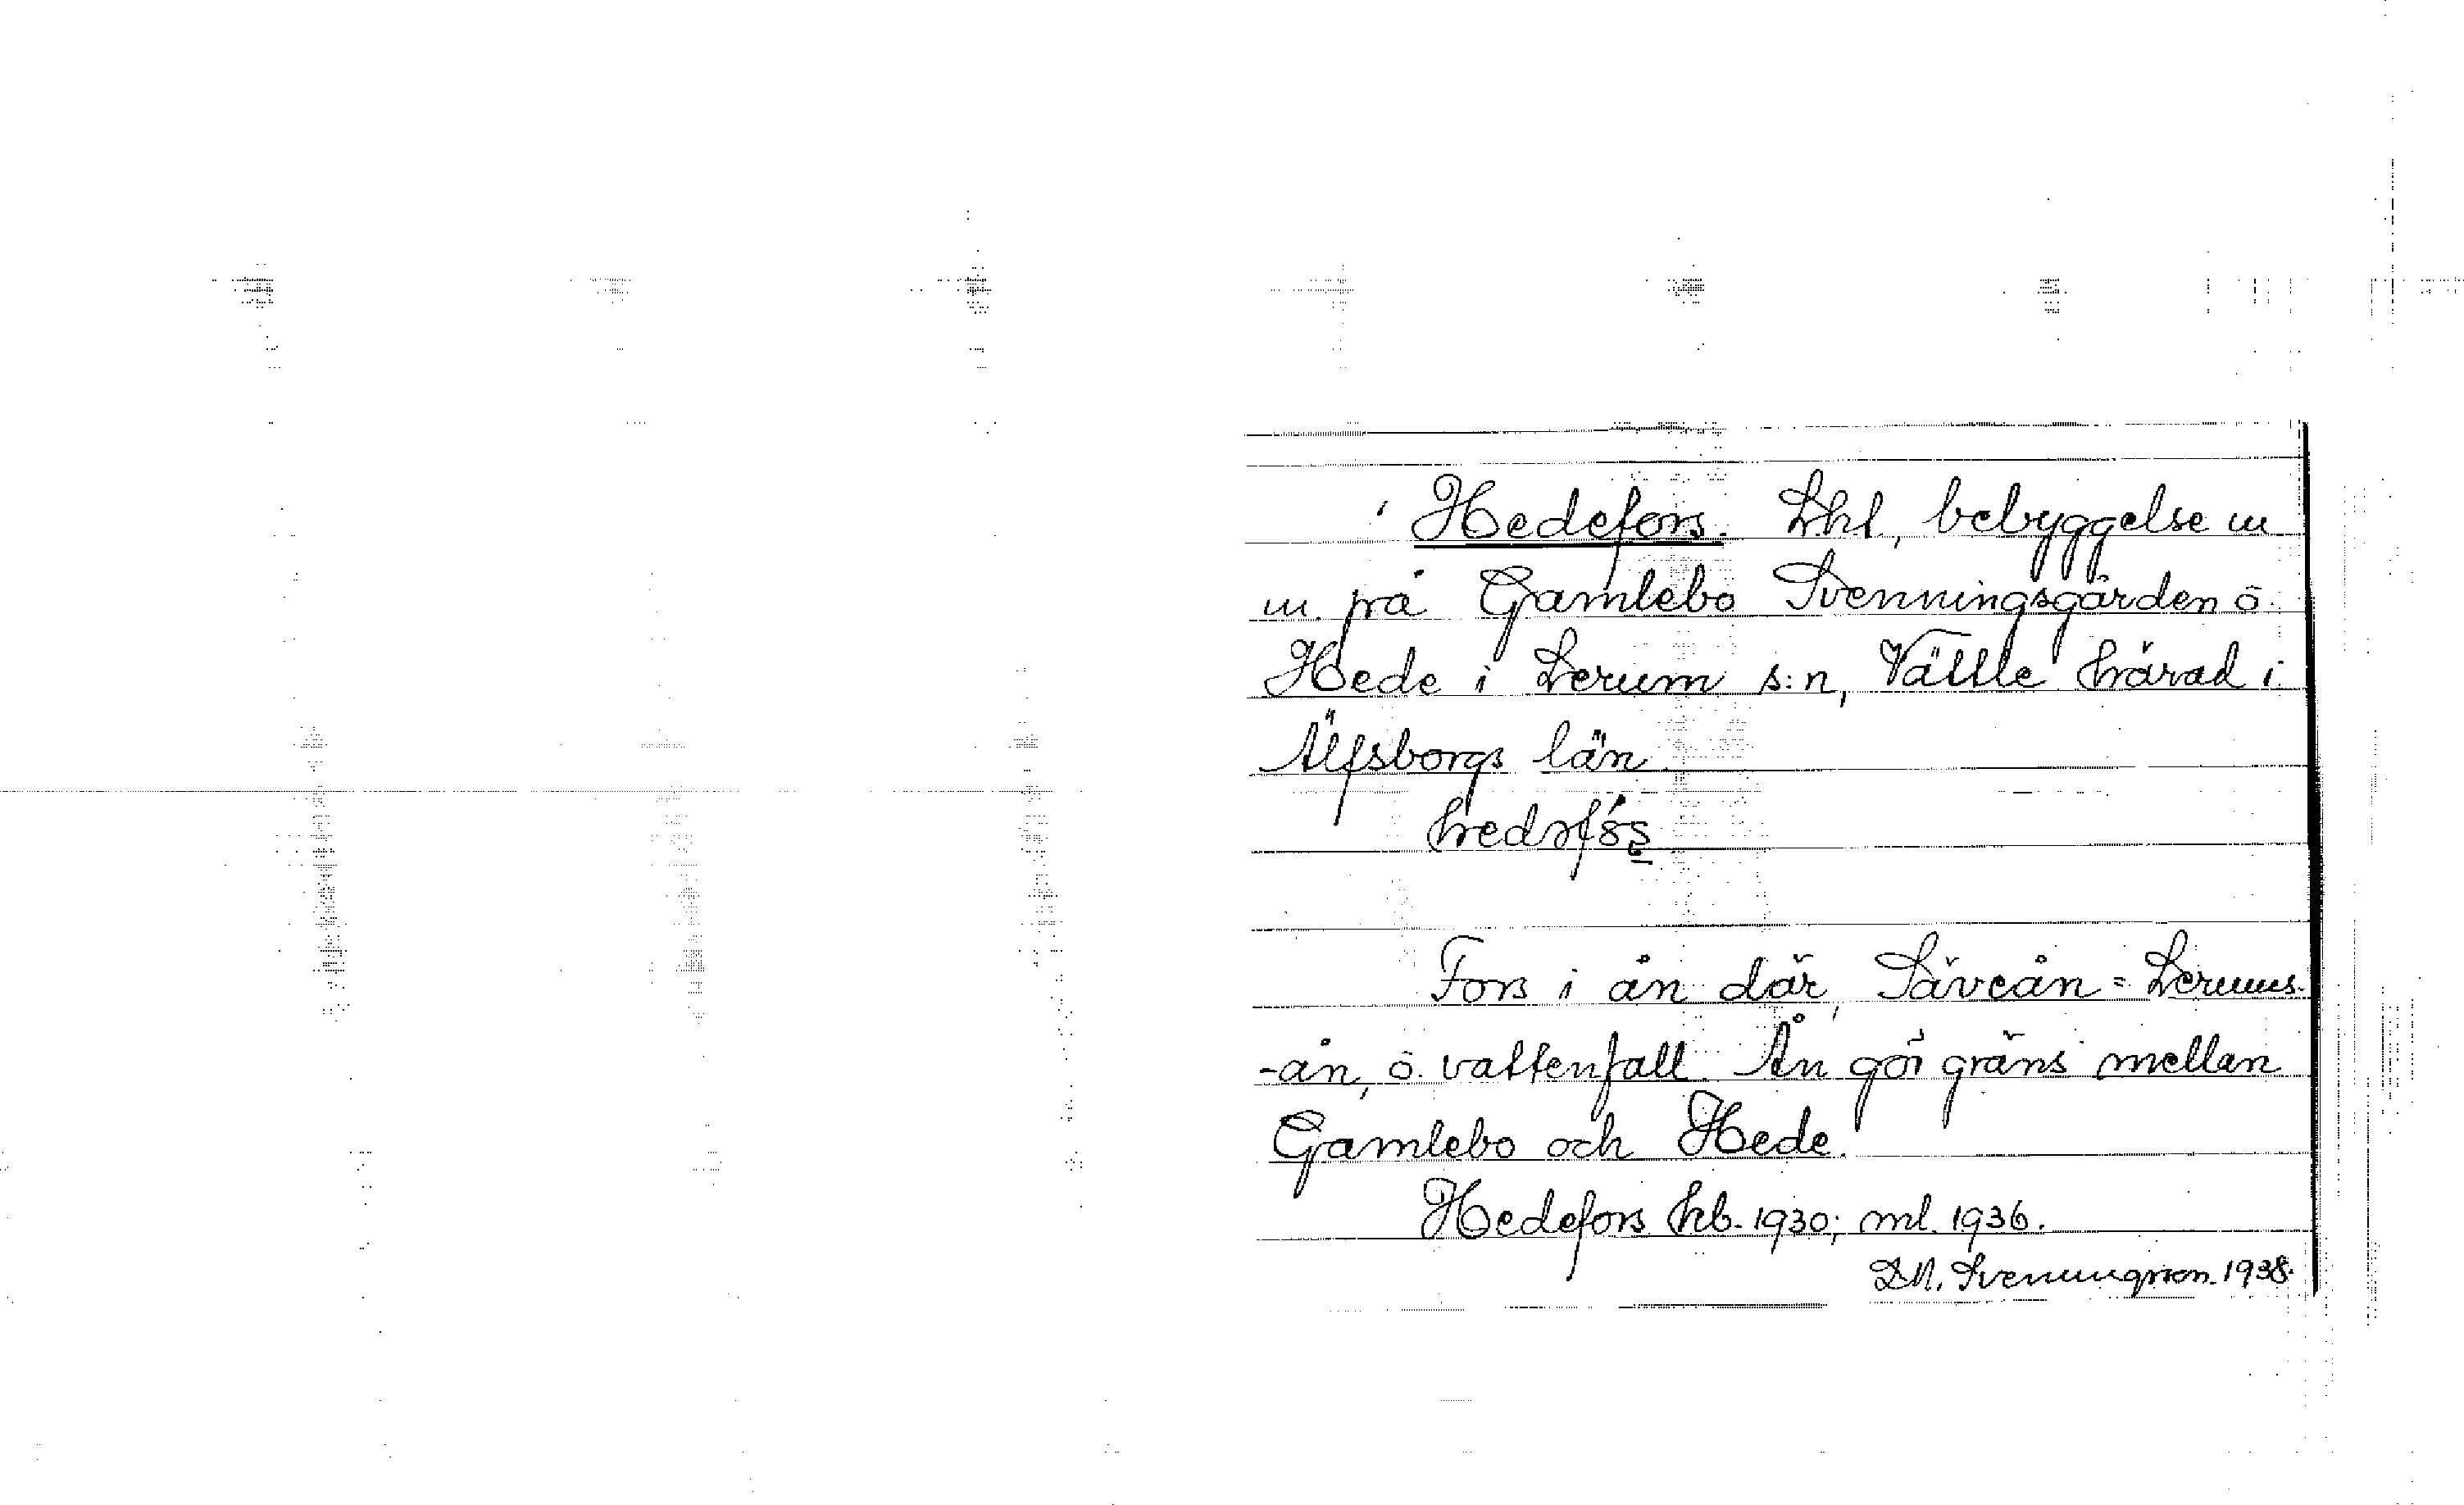 Hedefors. Lhl, bebyggelse m
m. på Gamlebo Svenningsgården o.
Hede i Lerum s:n, Vättle härad i
Älfsborgs län.
Fors i ån där, Säveån = Lerums-
-ån, o. vattenfall. Ån gör gräns mellan
Gamlebo och Hede.
Hedefors hb. 1930; ml. 1936.
Svenungsson. 1938.